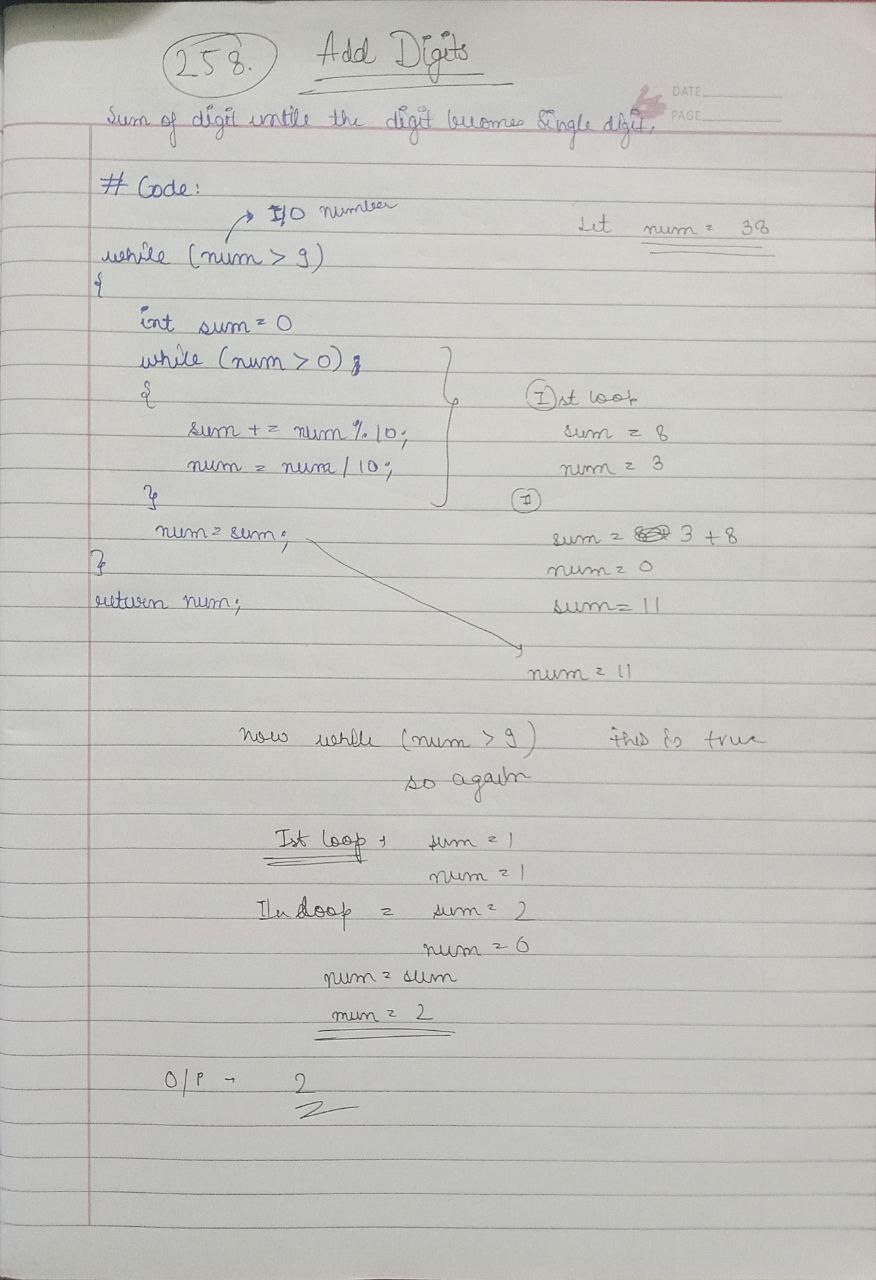 258. Add Digits
DATE
PAGE
Sum of digit untile the digit becomes single digit.
# Code:
I/O number
Let num = 38
while (num > 9)
{
int sum = 0
while (num > 0)
{
sum += num % 10;
num = num / 10;
}
num = sum;
}
return num;
Ist loop
sum = 8
num = 3
II
sum = 3 + 8
num = 0
sum = 11
num = 11
now while (num > 9) this is true
so again
Ist loop sum = 1
num = 1
loop = sum = 2
num = 0
num = sum
num = 2
O/P → 2